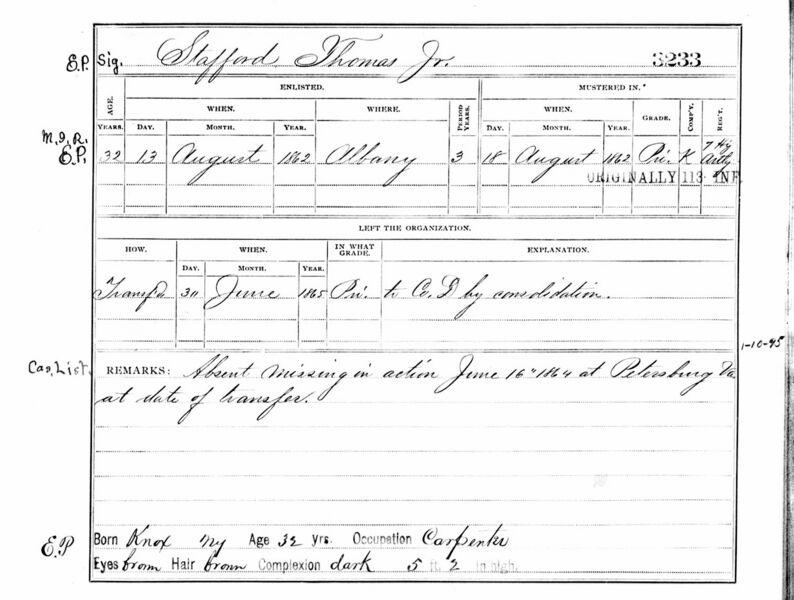 E.P. Sig. Stafford Thomas Jr. 3233
ENLISTED. MUSTERED IN.*
AGE. WHEN. WHERE. PERIOD YEARS. WHEN. GRADE. COMP'Y. REG'T.
YEARS. DAY. MONTH. YEAR. DAY. MONTH. YEAR.
M.I.R.
E.P. 32 13 August 1862 Albany 3 18 August 1862 Pri. K 7 Hy Artly
ORIGINALLY 113 INF
LEFT THE ORGANIZATION.
HOW. WHEN. IN WHAT GRADE. EXPLANATION.
DAY. MONTH. YEAR.
Transf'd 30 June 1865 Pri. to Co. D by consolidation.
1-10-95
Cas. List. REMARKS: Absent missing in action June 16" 1864 at Petersburg Va.
at date of transfer.
E.P Born Knox Ny Age 32 yrs. Occupation Carpenter
Eyes brown Hair brown Complexion dark 5 ft. 2 in high.